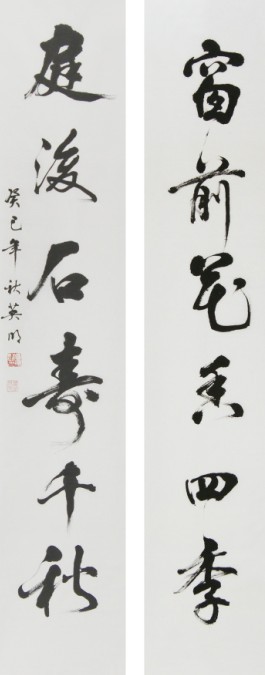 窗前花香四季
庭後石壽千秋
癸巳年秋英明